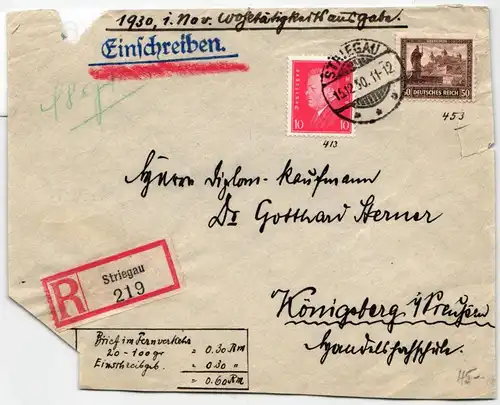 1930, i. Nov. Wohltätigkeitsausgabe.
Einschreiben.
STRIEGAU
15.12.30. 11-12
10 10
50 DEUTSCHES REICH 50
413
453
Herrn Diplom-Kaufmann
Dr Gotthard Sterner
R Striegau
219
Königsberg i/Preußen
Handelshochschule.
Brief im Fernverkehr
20-100 gr = 0.30 Rm
Einschreibgeb. = 0.30 "
= 0.60 Rm
45-